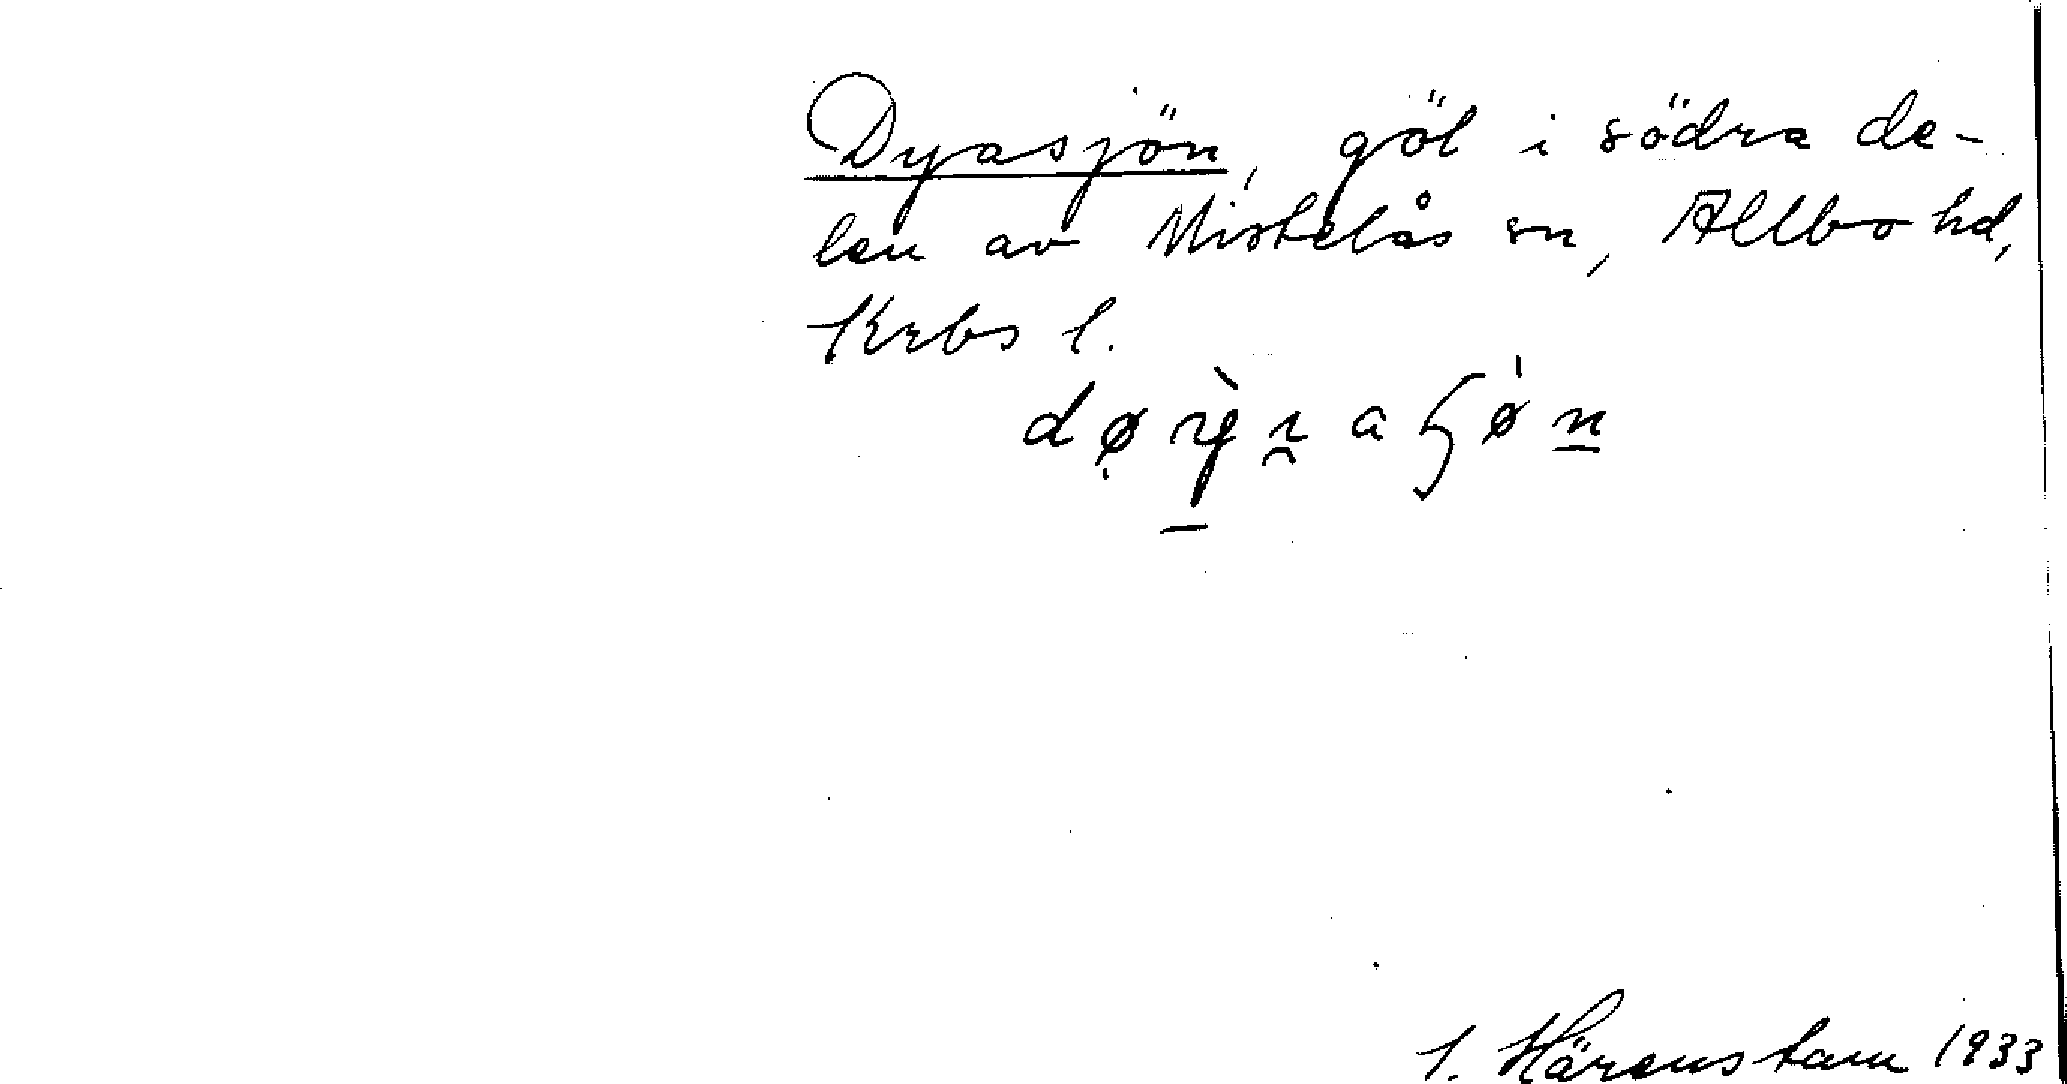 Dyasjön, göl i södra de-
len av Mistelås sn, Allbo hd,
Krbs l.
1. Härenstam 1933